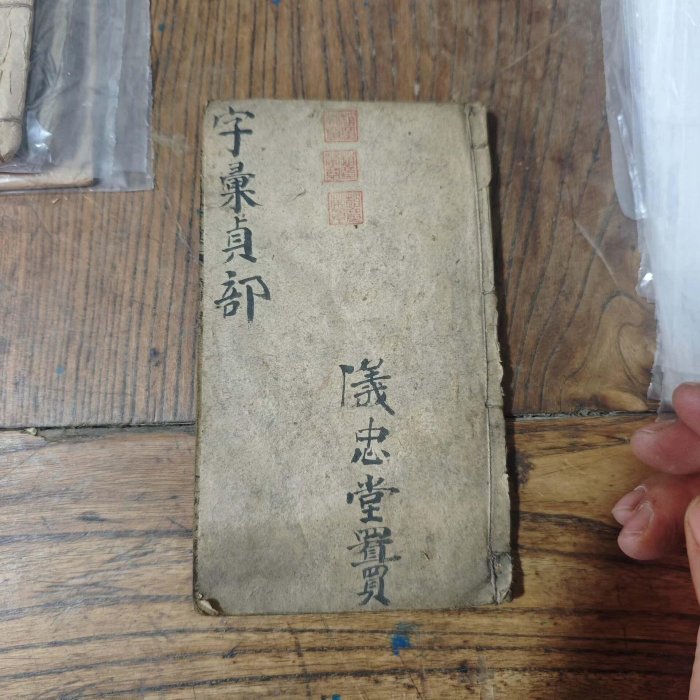 字彙貞部
儀忠堂置買